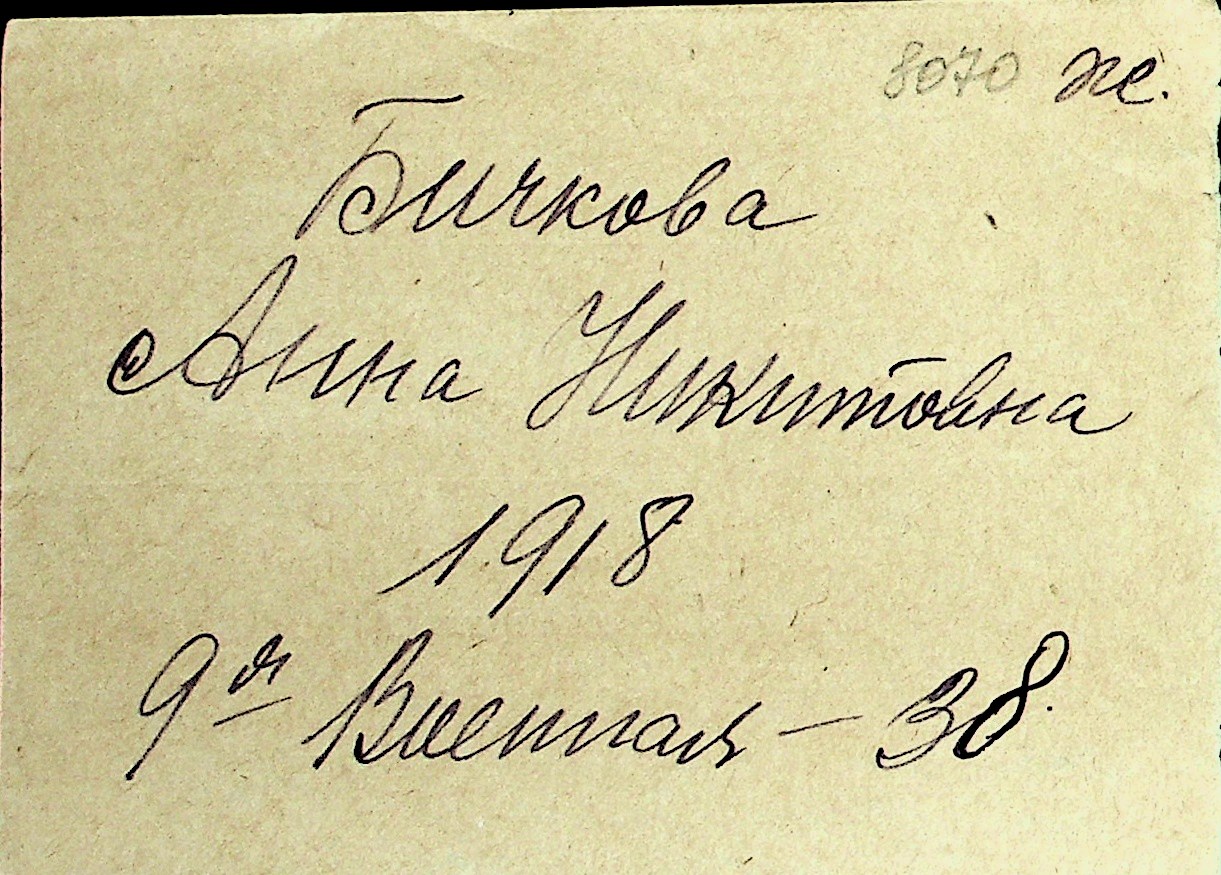 8070 ж.
Бичкова
Анна Никитовна
1918
9ая Военная – 38.